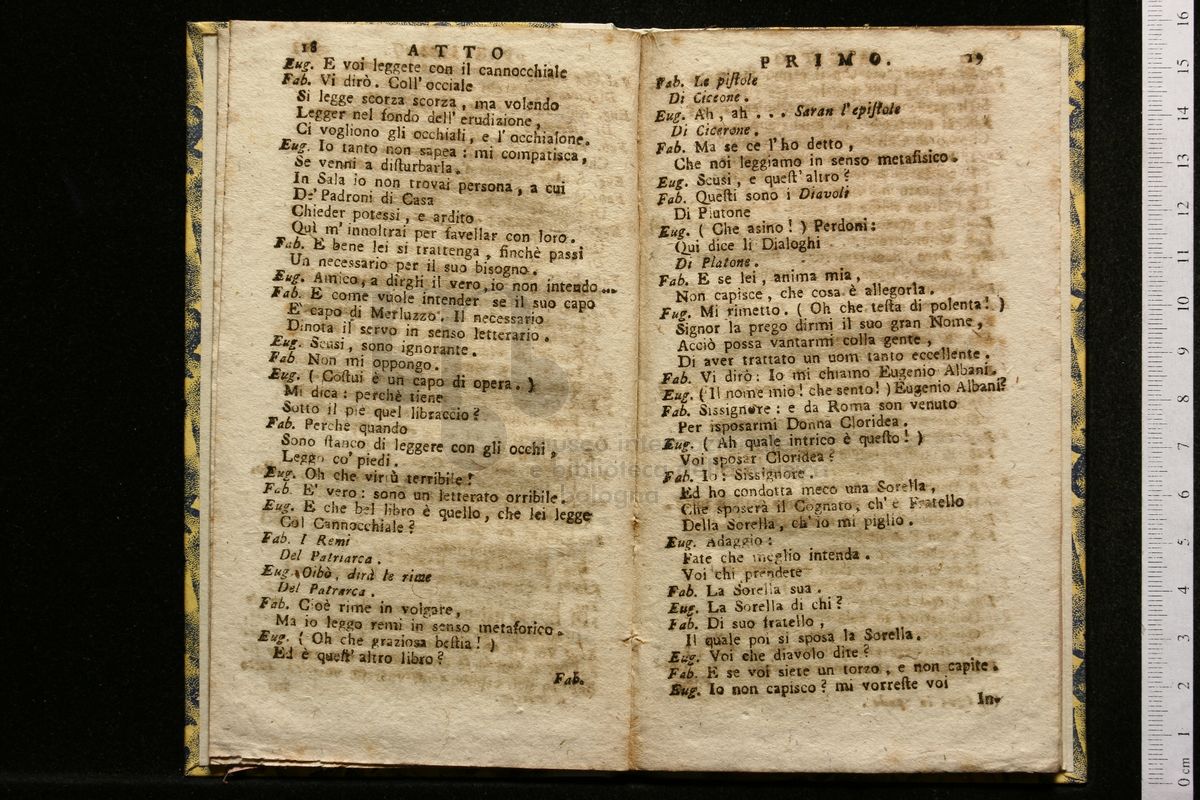 18 ATTO
Eug. E voi leggete con il cannocchiale
Fab. Vi dirò. Coll' occiale
Si legge scorza scorza, ma volendo
Legger nel fondo dell' erudizione,
Ci vogliono gli occhiali, e l' occhialone.
Eug. Io tanto non sapea: mi compatisca,
Se venni a disturbarla.
In Sala io non trovai persona, a cui
De' Padroni di Casa
Chieder potessi, e ardito
Quì m' innoltrai per favellar con loro.
Fab. E bene lei si trattenga, finchè passi
Un necessario per il suo bisogno.
Eug. Amico, a dirgli il vero, io non intendo...
Fab. E come vuole intender se il suo capo
E' capo di Merluzzo. Il necessario
Dinota il servo in senso letterario.
Eug. Scusi, sono ignorante.
Fab. Non mi oppongo.
Eug. (Costui è un capo di opera.)
Mi dica: perchè tiene
Sotto il piè quel libraccio?
Fab. Perchè quando
Sono stanco di leggere con gli occhi,
Leggo co' piedi.
Eug. Oh che virtù terribile!
Fab. E' vero: sono un letterato orribile.
Eug. E che bel libro è quello, che lei legge
Col Cannocchiale?
Fab. I Remi
Del Patriarca.
Eug. Oibò, dirà le rime
Del Petrarca.
Fab. Cioè rime in volgare,
Ma io leggo remi in senso metaforico.
Eug. (Oh che graziosa bestia!)
Ed è quest' altro libro?
Fab.
PRIMO. 19
Fab. Le pistole
Di Cicerone.
Eug. Ah, ah... Saran l'epistole
Di Cicerone.
Fab. Ma se ce l'ho detto,
Che noi leggiamo in senso metafisico.
Eug. Scusi, e quest'altro?
Fab. Questi sono i Diavoli
Di Plutone
Eug. (Che asino!) Perdoni:
Qui dice li Dialoghi
Di Platone.
Fab. E se lei, anima mia,
Non capisce, che cosa è allegoria.
Eug. Mi rimetto. (Oh che testa di polenta!)
Signor la prego dirmi il suo gran Nome,
Acciò possa vantarmi colla gente,
Di aver trattato un uom tanto eccellente.
Fab. Vi dirò: Io mi chiamo Eugenio Albani.
Eug. (Il nome mio! che sento!) Eugenio Albani?
Fab. Sissignore: e da Roma son venuto
Per isposarmi Donna Cloridea.
Eug. (Ah quale intrico è questo!)
Voi sposar Cloridea?
Fab. Io: Sissignore.
Ed ho condotta meco una Sorella,
Che sposerà il Cognato, ch' è Fratello
Della Sorella, ch' io mi piglio.
Eug. Adaggio:
Fate che meglio intenda.
Voi chi prendete
Fab. La Sorella sua.
Eug. La Sorella di chi?
Fab. Di suo fratello,
Il quale poi si sposa la Sorella.
Eug. Voi che diavolo dite?
Fab. E se voi siete un torzo, e non capite.
Eug. Io non capisco? mi vorreste voi
In-